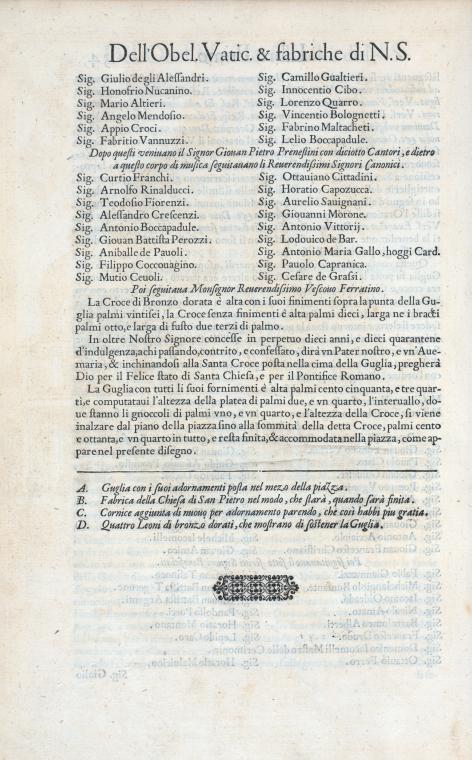 Dell'Obel. Vatic. & fabriche di N.S.
Sig. Giulio degli Alessandri. Sig. Camillo Gualtieri.
Sig. Honofrio Nucanino. Sig. Innocentio Cibo.
Sig. Mario Altieri. Sig. Lorenzo Quarro.
Sig. Angelo Mendosio. Sig. Vincentio Bolognetti.
Sig. Appio Croci. Sig. Fabrino Maltacheti.
Sig. Fabritio Vannuzzi. Sig. Lelio Boccapadule.
Dopo questi venivano il Signor Giouan Pietro Prenestini con diciotto Cantori, e dietro
a questo corpo di musica seguitauano li Reverendissimi Signori Canonici.
Sig. Curtio Franchi. Sig. Ottauiano Cittadini.
Sig. Arnolfo Rinalducci. Sig. Horatio Capozucca.
Sig. Teodosio Fiorenzi. Sig. Aurelio Sauignani.
Sig. Alessandro Crescenzi. Sig. Giouanni Morone.
Sig. Antonio Boccapadule. Sig. Antonio Vittorij.
Sig. Giouan Battista Perozzi. Sig. Lodouico de Bar.
Sig. Aniballe de Pauoli. Sig. Antonio Maria Gallo, hoggi Card.
Sig. Filippo Coccouagino. Sig. Pauolo Capranica.
Sig. Mutio Ceuoli. Sig. Cesare de Grassi.
Poi seguitaua Monsignor Reuerendissimo Vescouo Ferratino.
La Croce di Bronzo dorata è alta con i suoi finimenti sopra la punta della Gu-
glia palmi vintisei, la Croce senza finimenti è alta palmi dieci, larga ne i bracci
palmi otto, e larga di fusto due terzi di palmo.
In oltre Nostro Signore concesse in perpetuo dieci anni, e dieci quarantene
d'indulgenza, a chi passando, contrito, e confessato, dirà vn Pater nostro, e vn'Aue-
maria, & inchinandosi alla Santa Croce posta nella cima della Guglia, pregherà
Dio per il Felice stato di Santa Chiesa, e per il Pontifice Romano.
La Guglia con tutti li suoi fornimenti è alta palmi cento cinquanta, e tre quar-
ti, e computataui l'altezza della platea di palmi due, e vn quarto, l'interuallo, do-
ue stanno li gnoccoli di palmi vno, e vn quarto, e l'altezza della Croce, si viene
inalzare dal piano della piazza sino alla sommità della detta Croce, palmi cento
e ottanta, e vn quarto in tutto, e resta finita, & accommodata nella piazza, come ap-
pare nel presente disegno.
A. Guglia con i suoi adornamenti posta nel mezo della piazza.
B. Fabrica della Chiesa di San Pietro nel modo, che starà, quando sarà finita.
C. Cornice aggiunta di nuouo per adornamento parendo, che così habbi piu gratia.
D. Quattro Leoni di bronzo dorati, che mostrano di sostener la Guglia.